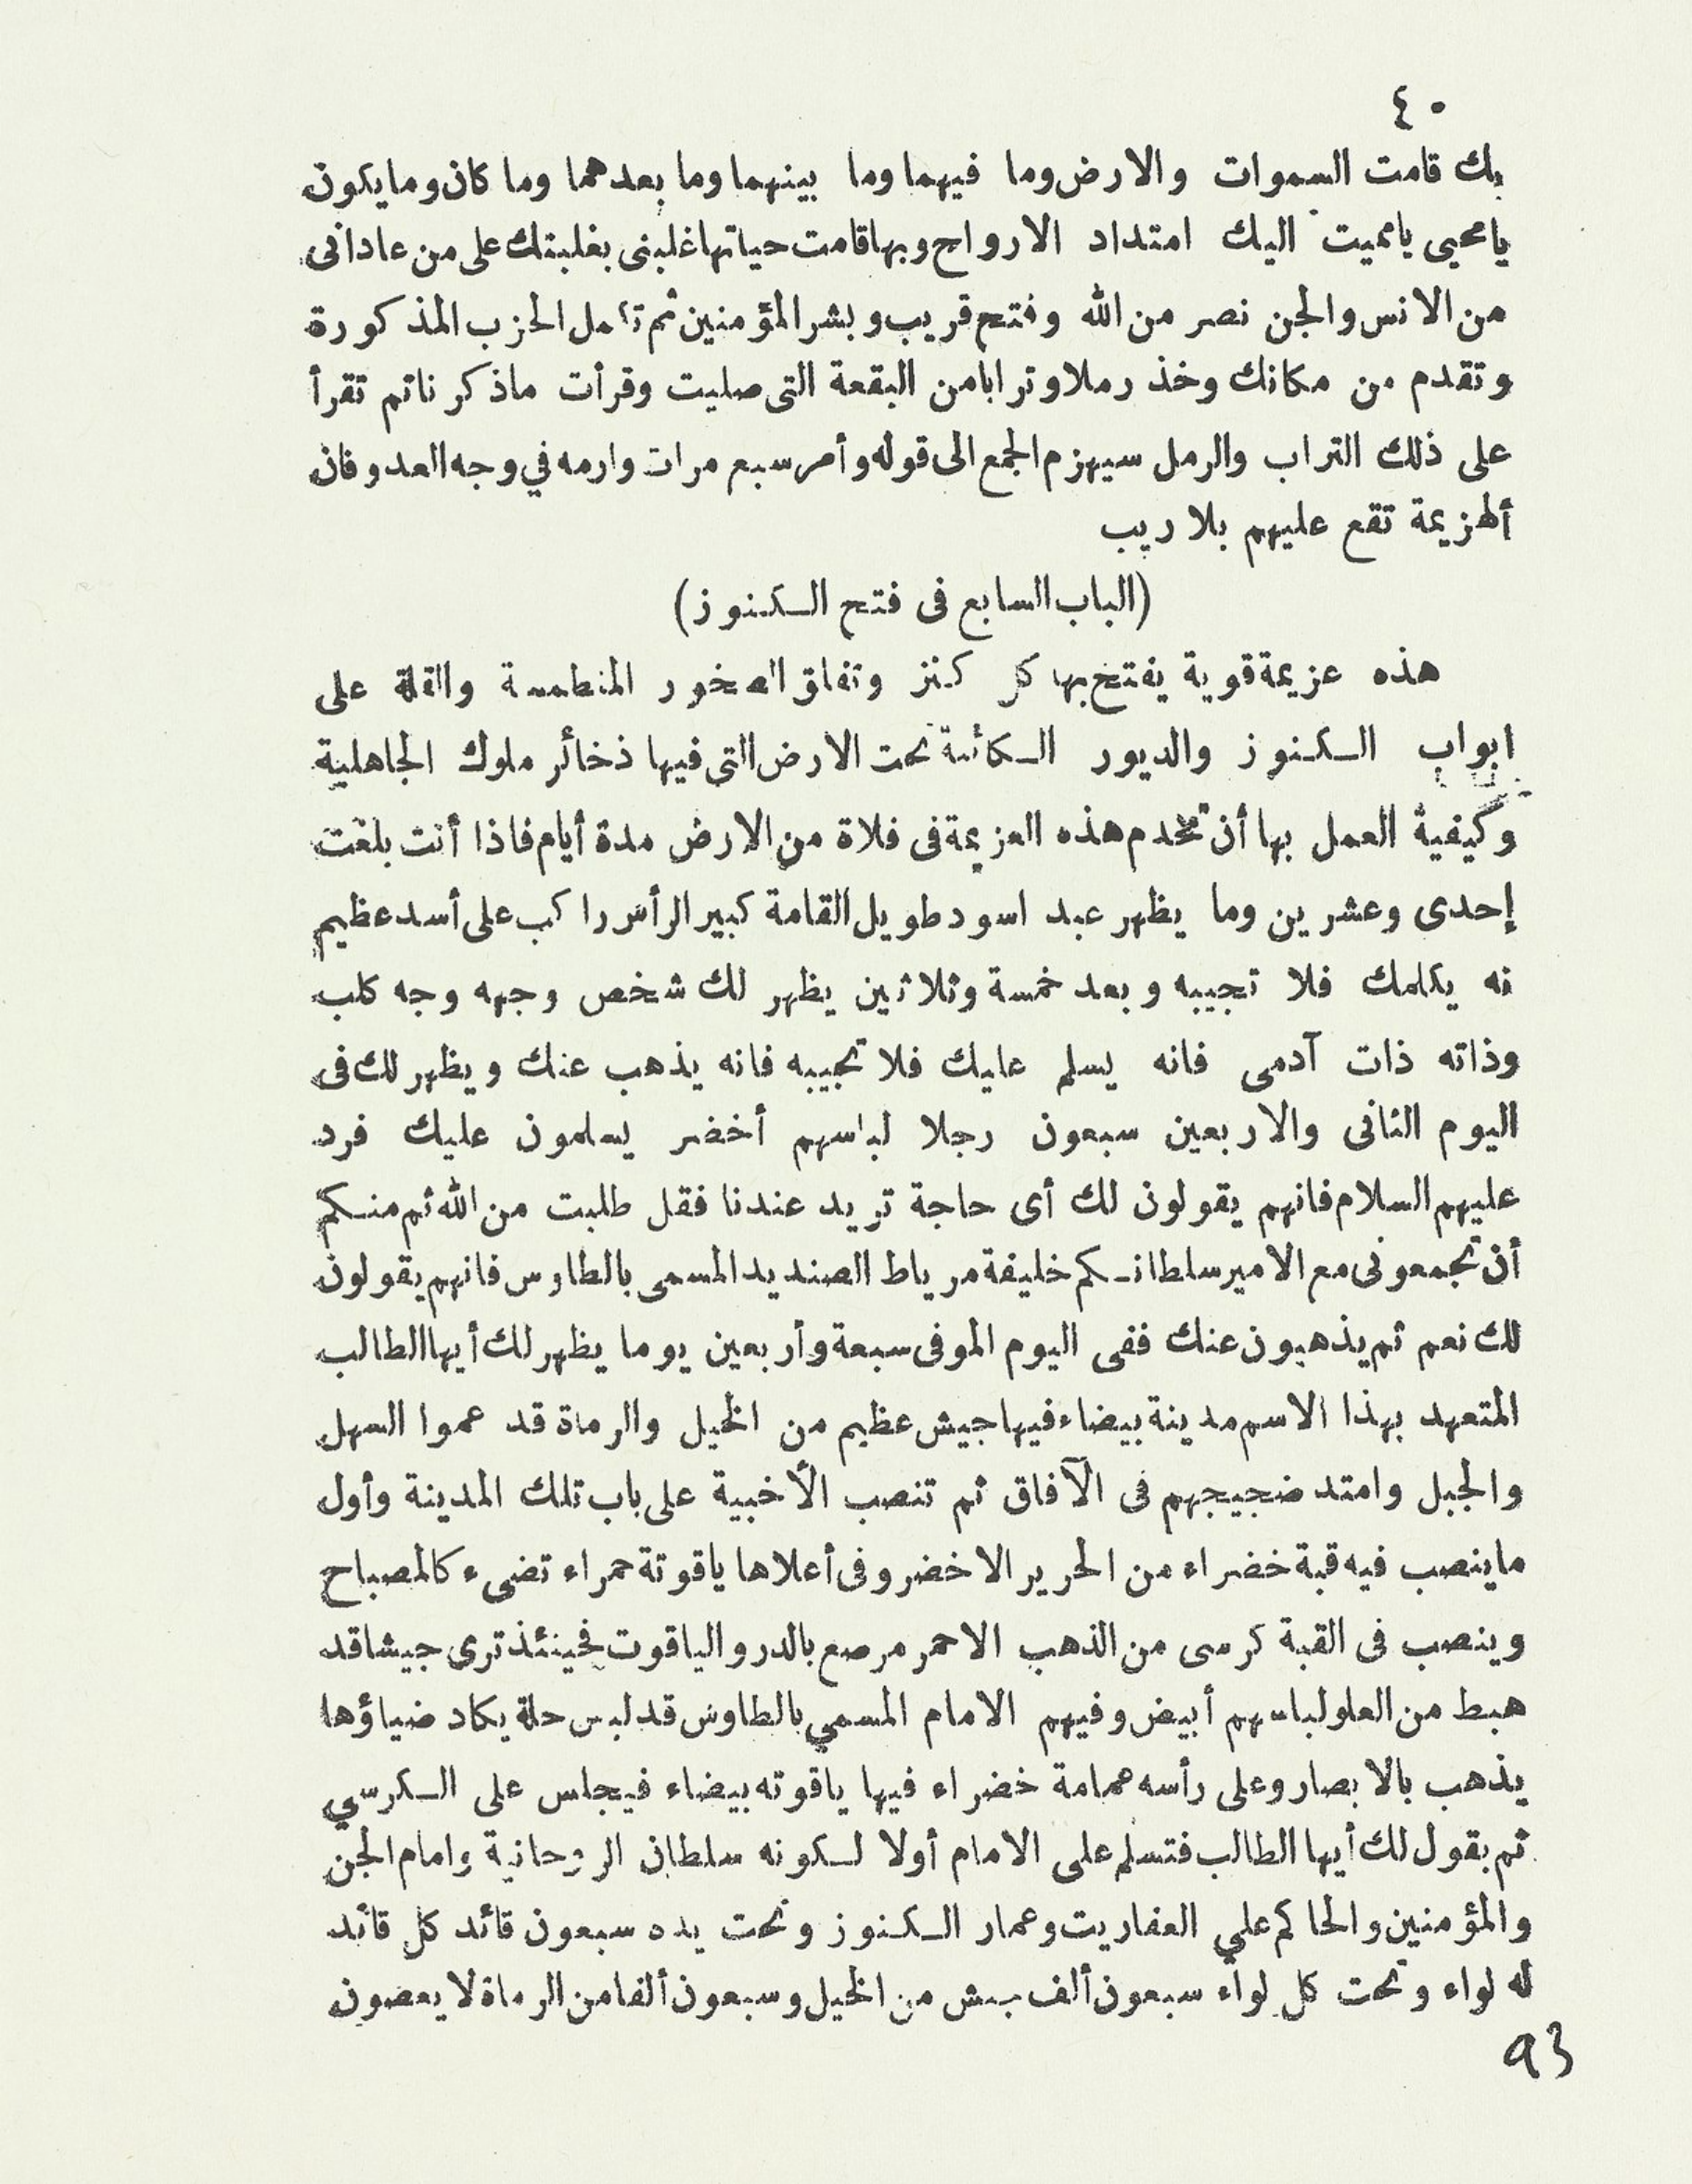 ٤٠
بك قامت السموات والارض وما فيهما وما بينهما وما بعدهما وما كان وما يكون
يا محيى يا مميت اليك امتداد الارواح وبها قامت حياتها غلبنى بغلبتك على من عادانى
من الانس والجن نصر من الله وفتح قريب وبشر المؤمنين ثم تأمل الحزب المذكورة
وتقدم من مكانك وخذ رملا وترابا من البقعة التى صليت وقرأت ماذكرنا ثم تقرأ
على ذلك التراب والرمل سيهزم الجمع الى قوله وأمر سبع مرات وارمه في وجه العدو فان
ألهزيمة تقع عليهم بلا ريب
(الباب السابع فى فتح الكنوز)
هذه عزيمة قوية يفتح بها كل كنز وتفلق الصخور المنطمسة والقلة على
ابواب الكنوز والديور الكائنة تحت الارض التى فيها ذخائر ملوك الجاهلية
وكيفية العمل بها أن تخدم هذه العزيمة فى فلاة من الارض مدة أيام فاذا أنت بلغت
إحدى وعشرين وما يظهر عبد اسود طويل القامة كبير الرأس راكب على أسد عظيم
نه يكلمك فلا تجيبه وبعد خمسة وثلاثين يظهر لك شخص وجهه وجه كلب
وذاته ذات آدمى فانه يسلم عليك فلا تجيبه فانه يذهب عنك ويظهر لك فى
اليوم الثانى والاربعين سبعون رجلا لباسهم أخضر يسلمون عليك فرد
عليهم السلام فانهم يقولون لك أى حاجة تريد عندنا فقل طلبت من الله ثم منكم
أن تجمعونى مع الامير سلطانكم خليفة مرياط الصنديد المسمى بالطاوس فانهم يقولون
لك نعم ثم يذهبون عنك ففى اليوم الموفى سبعة وأربعين يوما يظهر لك أيها الطالب
المتعهد بهذا الاسم مدينة بيضاء فيها جيش عظيم من الخيل والرماة قد عموا السهل
والجبل وامتد ضجيجهم فى الآفاق ثم تنصب الأخبية على باب تلك المدينة وأول
ماينصب فيه قبة خضراء من الحرير الاخضر وفى أعلاها ياقوتة حمراء تضىء كالمصباح
وينصب فى القبة كرسى من الذهب الاحمر مرصع بالدر والياقوت فحينئذ ترى جيشا قد
هبط من العلو لباسهم أبيض وفيهم الامام المسمي بالطاوس قد لبس حلة يكاد ضياؤها
يذهب بالابصار وعلى رأسه عمامة خضراء فيها ياقوته بيضاء فيجلس على الكرسي
ثم يقول لك أيها الطالب فتسلم على الامام أولا لكونه سلطان الروحانية وامام الجن
والمؤمنين والحاكم علي العفاريت وعمار الكنوز وتحت يده سبعون قائد كل قائد
له لواء وتحت كل لواء سبعون ألف من الخيل وسبعون ألفا من الرماة لا يعصون
93